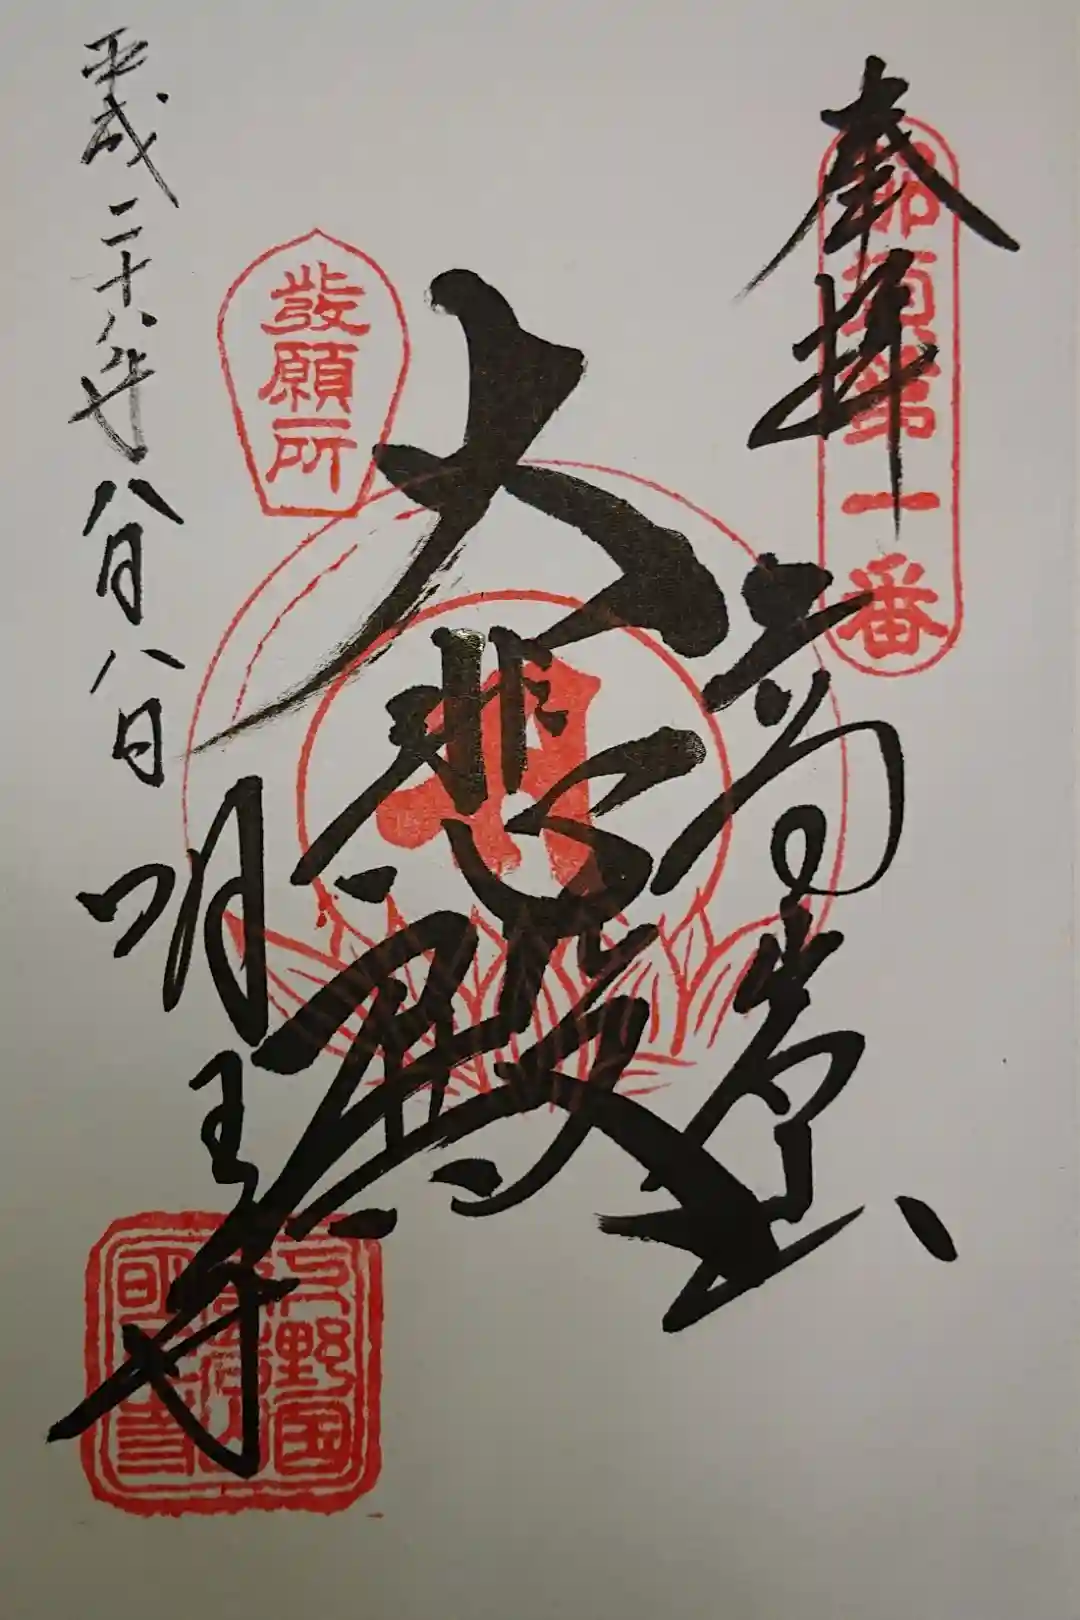 奉拝
那須第一番
大悲殿
發願所
平成二十八年八月八日
明王寺
下野国
明王寺